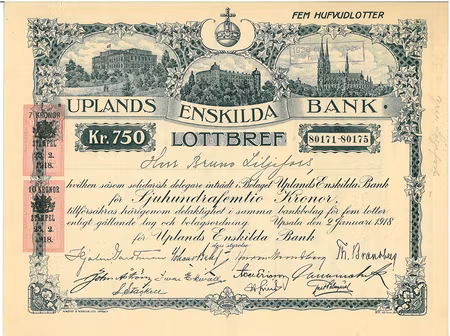 FEM HUFVUDLOTTER
UPLANDS ENSKILDA BANK.
Kr. 750 LOTTBREF 80171-80175
Herr Bruno Liljefors
hvilken såsom solidarisk delegare inträdt i Bolaget Uplands Enskilda Bank
för Sjuhundrafemtio Kronor,
tillförsäkras härigenom delaktighet i samma bankbolag för fem lotter
enligt gällande lag och bolagsordning. Upsala den 2 Januari 1918
för Uplands Enskilda Bank
dess styrelse
7 KRONOR
STÄMPEL
23. 2.
1918.
10 KRONOR
STÄMPEL
23. 2.
1918.